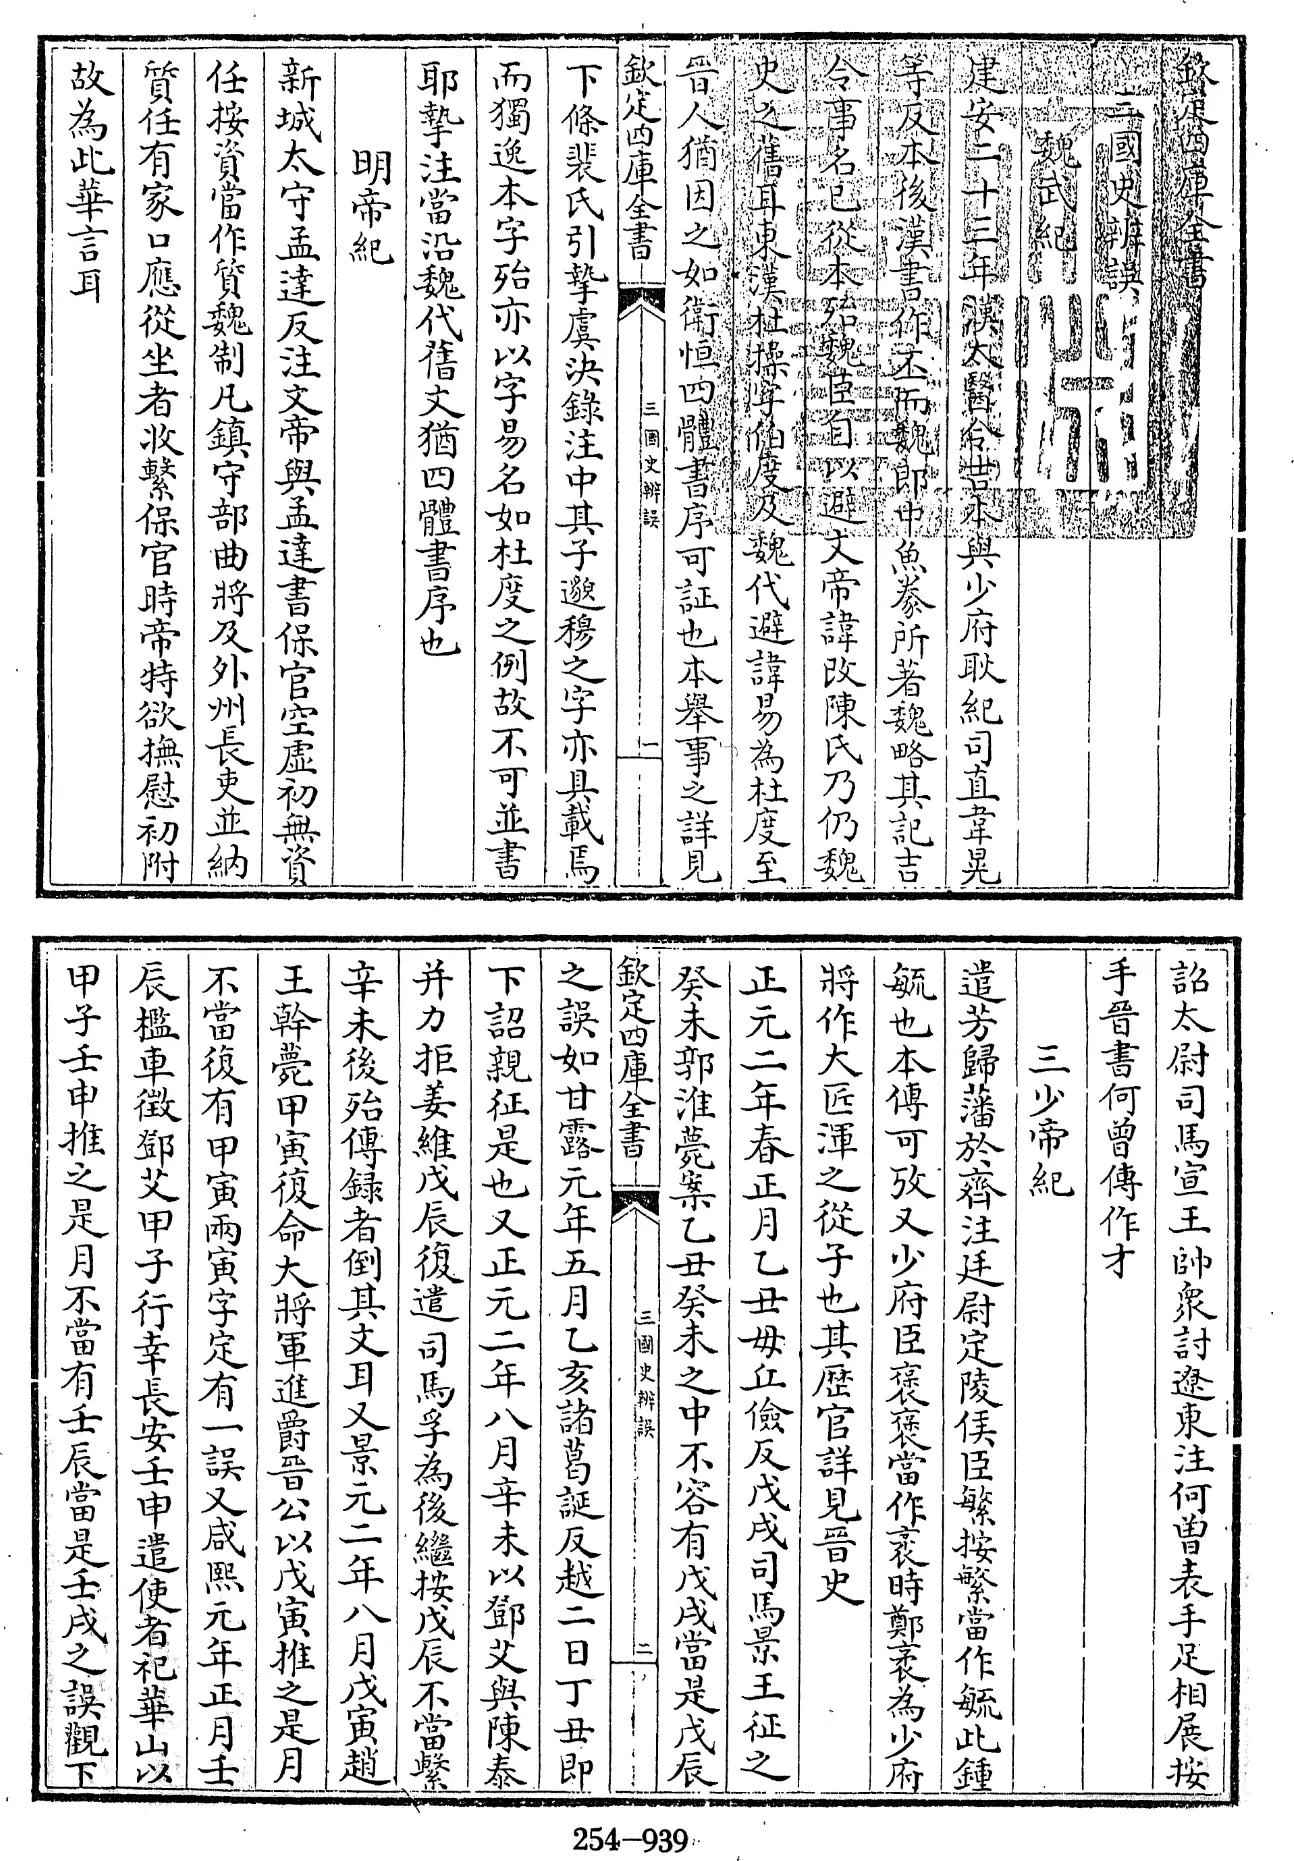 欽定四庫全書
三國史辨誤
魏武紀
建安二十三年漢太醫令吉本與少府耿紀司直韋晃
等反本後漢書作㔻而魏郎中魚豢所著魏略其記吉
令事名已從本殆魏臣自以避文帝諱改陳氏乃仍魏
史之舊耳東漢杜操字伯度及魏代避諱易為杜度至
晉人猶因之如衛恒四體書序可証也本舉事之詳見
欽定四庫全書
三國史辨誤
一
下條裴氏引摯虞決錄注中其子邈穆之字亦具載焉
而獨逸本字殆亦以字易名如杜度之例故不可並書
耶摯注當沿魏代舊文猶四體書序也
明帝紀
新城太守孟達反注文帝與孟達書保官空虛初無資
任按資當作質魏制凡鎮守部曲將及外州長吏並納
質任有家口應從坐者收繫保官時帝特欲撫慰初附
故為此華言耳
詔太尉司馬宣王帥衆討遼東注何曾表手足相展按
手晉書何曾傳作才
三少帝紀
遣芳歸藩於齊注廷尉定陵侯臣繁按繁當作毓此鍾
毓也本傳可攷又少府臣褒褒當作袤時鄭袤為少府
將作大匠渾之從子也其歷官詳見晉史
正元二年春正月乙丑毋丘儉反戊戌司馬景王征之
癸未郭淮薨案乙丑癸未之中不容有戊戌當是戊辰
欽定四庫全書
三國史辨誤
二
之誤如甘露元年五月乙亥諸葛誕反越二日丁丑即
下詔親征是也又正元二年八月辛未以鄧艾與陳泰
并力拒姜維戊辰復遣司馬孚為後繼按戊辰不當繫
辛未後殆傳録者倒其文耳又景元二年八月戊寅趙
王幹薨甲寅復命大將軍進爵晉公以戊寅推之是月
不當復有甲寅兩寅字定有一誤又咸熙元年正月壬
辰檻車徵鄧艾甲子行幸長安壬申遣使者祀華山以
甲子壬申推之是月不當有壬辰當是壬戌之誤觀下
254—939